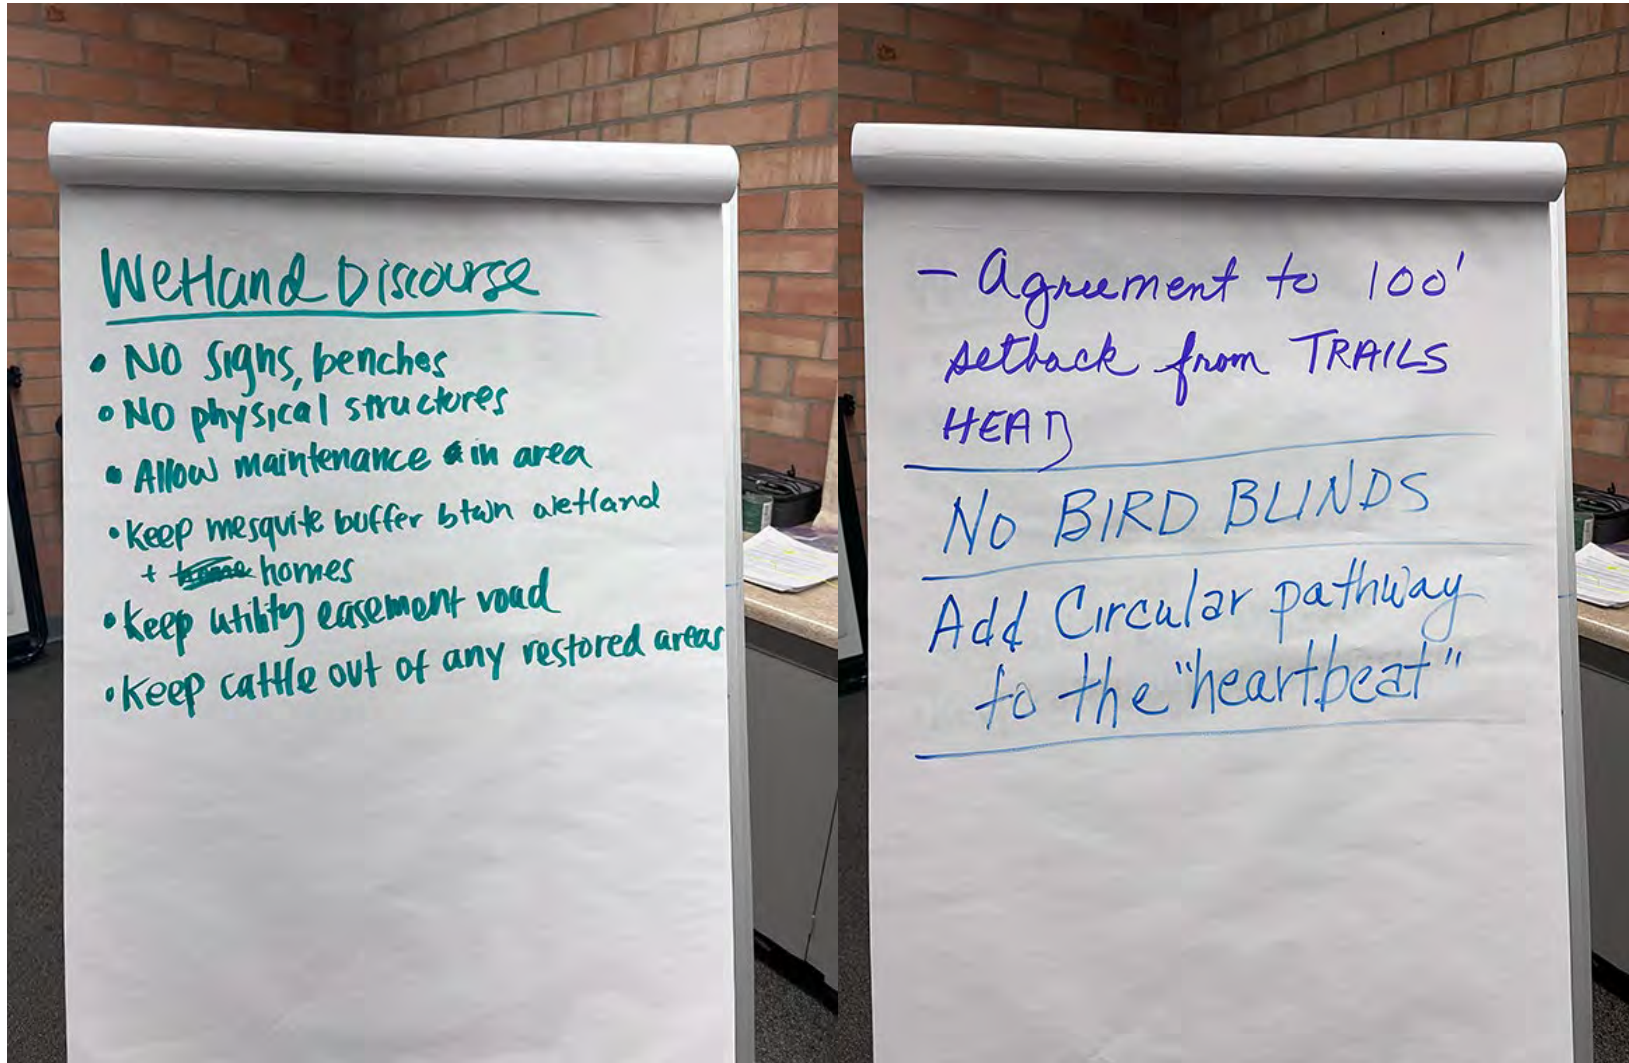 Wetland Discourse
• NO signs, benches
• NO physical structures
• Allow maintenance in area
• Keep mesquite buffer btwn wetland
+ homes
• Keep utility easement road
• Keep cattle out of any restored areas
- Agreement to 100'
setback from TRAILS
HEAD
No BIRD BLINDS
Add Circular pathway
to the "heartbeat"